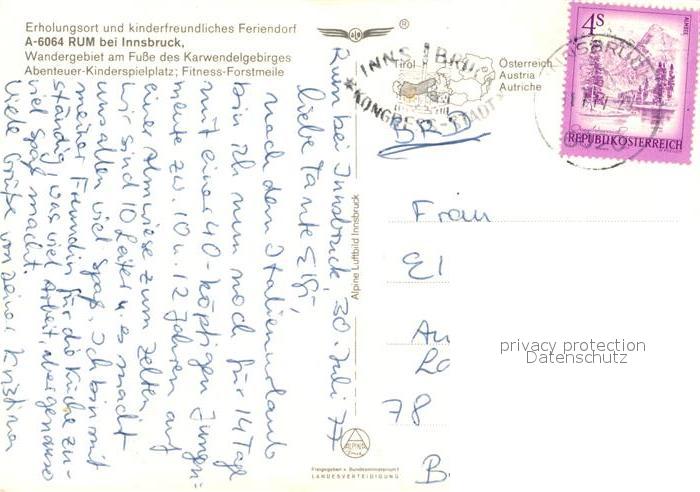 Erholungsort und kinderfreundliches Feriendorf
A-6064 RUM bei Innsbruck,
Wandergebiet am Fuße des Karwendelgebirges
Abenteuer-Kinderspielplatz; Fitness-Forstmeile
®
Tirol
Österreich
Austria
Autriche
INNSBRUCK
KONGRESS-STADT
INNSBRUCK
6020
4S
ALMSEE
REPUBLIK ÖSTERREICH
Rum bei Innsbruck, 30. Juli 77
liebe Tante Sigi,
nach dem Italienurlaub
bin ich nun noch für 14 Tage
mit einer 40-köpfigen Jungen=
meute zw. 10 u. 12 Jahren auf
einer Almwiese zum Zelten.
Wir sind 10 Leiter u. es macht
uns allen viel Spaß. Ich bin mit
meiner Freundin für die Küche zu-
ständig, was viel Arbeit, aber genauso
viel Spaß macht.
Viele Grüße von Deiner Kristina
Alpine Luftbild Innsbruck
ALPINE
Freigegeben v. Bundesministerium f.
LANDESVERTEIDIGUNG
BRD
Frau
78
B
privacy protection
Datenschutz